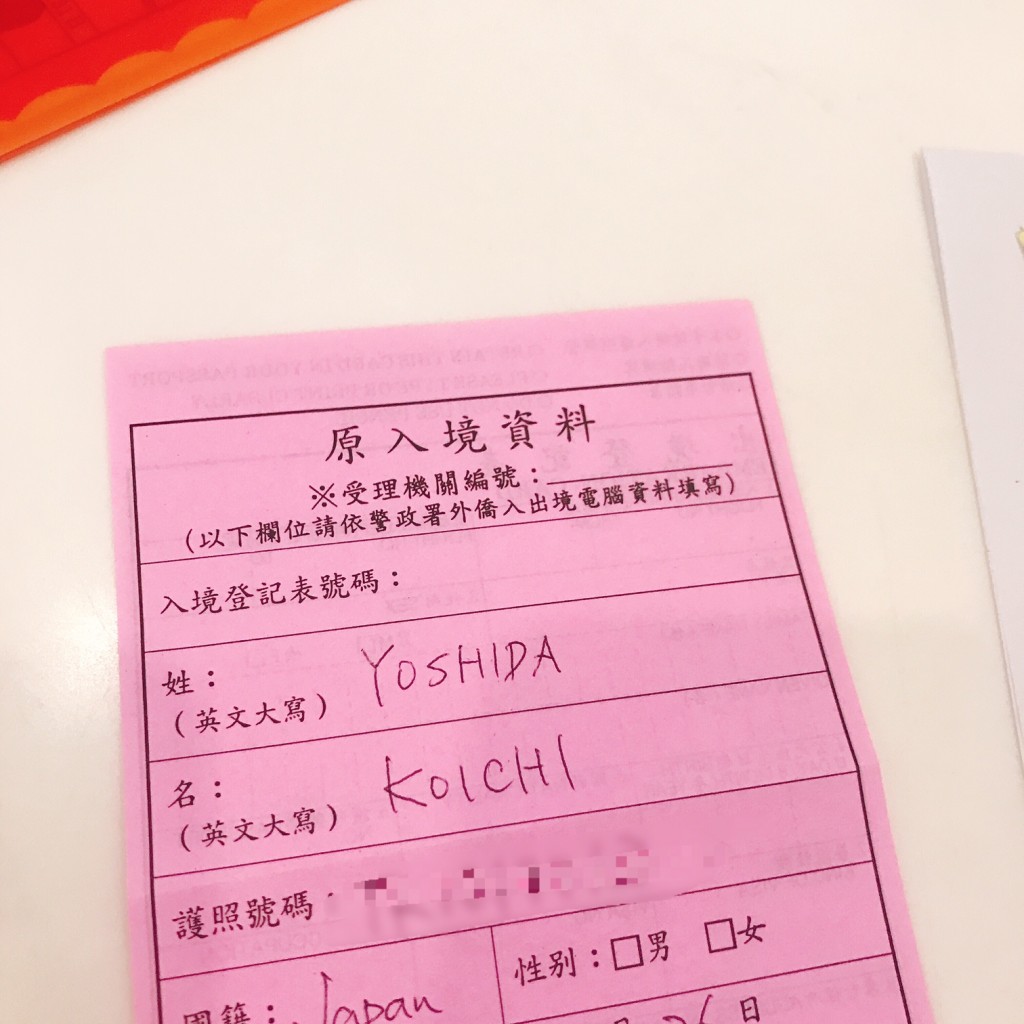 原入境資料
※受理機關編號：
(以下欄位請依警政署外僑入出境電腦資料填寫)
入境登記表號碼：
姓： YOSHIDA
(英文大寫)
名： KOICHI
(英文大寫)
護照號碼：
性別：□男 □女
國籍： Japan
日